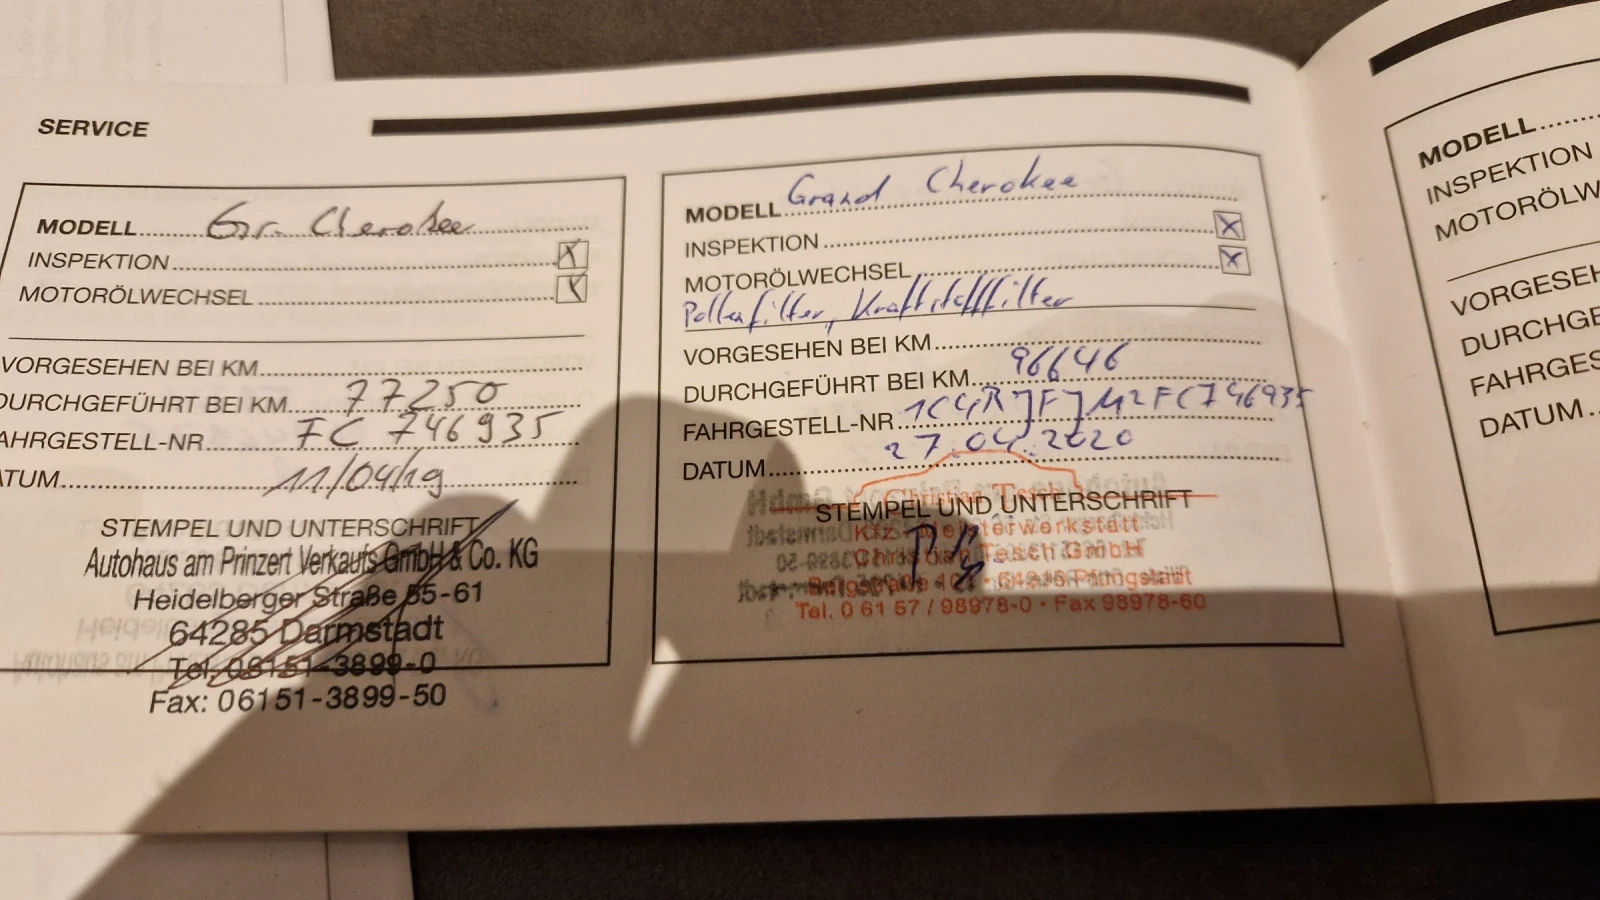 SERVICE
MODELL Gr. Cherokee
INSPEKTION X
MOTORÖLWECHSEL X
VORGESEHEN BEI KM
DURCHGEFÜHRT BEI KM 77250
FAHRGESTELL-NR FC 746935
DATUM 11/04/19
STEMPEL UND UNTERSCHRIFT
Autohaus am Prinzert Verkaufs GmbH & Co. KG
Heidelberger Straße 55-61
64285 Darmstadt
Tel. 06151-3899-0
Fax: 06151-3899-50
MODELL Grand Cherokee
INSPEKTION X
MOTORÖLWECHSEL X
Pollenfilter, Kraftstofffilter
VORGESEHEN BEI KM
DURCHGEFÜHRT BEI KM 96646
FAHRGESTELL-NR 1C4RJFJM2FC746935
DATUM 27.04.2020
Christian Tesch
STEMPEL UND UNTERSCHRIFT
Kfz-Meisterwerkstatt
Christian Tesch GmbH
64319 Pfungstadt
Tel. 0 61 57 / 98978-0 · Fax 98978-60
MODELL
INSPEKTION
MOTORÖLW
VORGESEH
DURCHGE
FAHRGES
DATUM